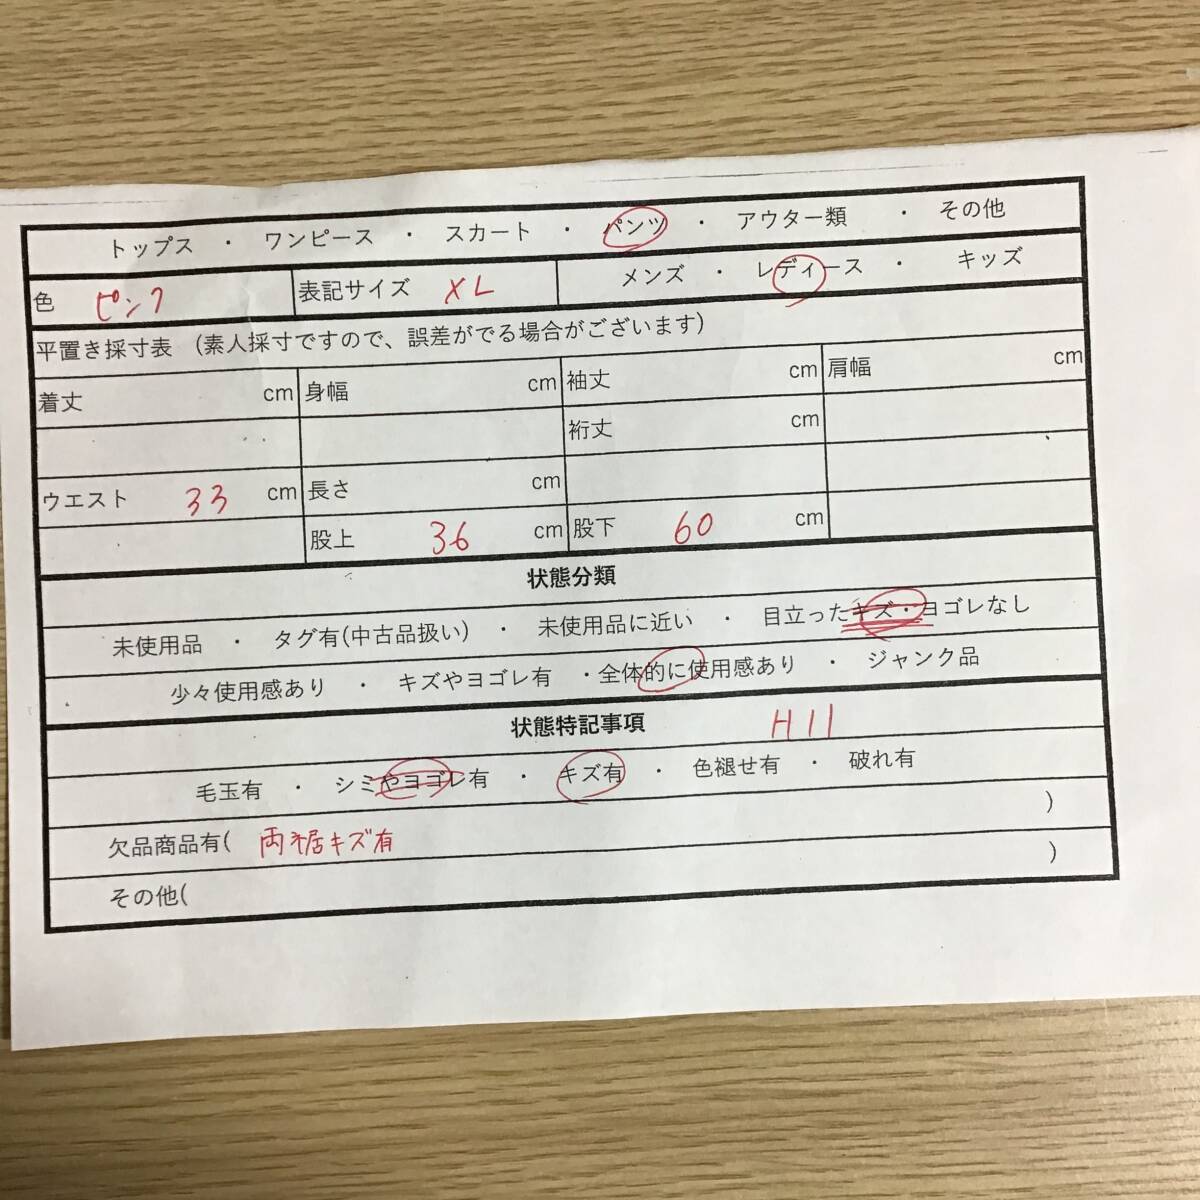 トップス ・ ワンピース ・ スカート ・ パンツ ・ アウター類 ・ その他
色 ピンク 表記サイズ XL メンズ ・ レディース ・ キッズ
平置き採寸表 (素人採寸ですので、誤差がでる場合がございます)
着丈 cm 身幅 cm 袖丈 cm 肩幅 cm
裄丈 cm
ウエスト 33 cm 長さ cm
股上 36 cm 股下 60 cm
状態分類
未使用品 ・ タグ有(中古品扱い) ・ 未使用品に近い ・ 目立ったキズ・ヨゴレなし
少々使用感あり ・ キズやヨゴレ有 ・全体的に使用感あり ・ ジャンク品
状態特記事項 H11
毛玉有 ・ シミやヨゴレ有 ・ キズ有 ・ 色褪せ有 ・ 破れ有
欠品商品有( 両裾キズ有 )
その他( )